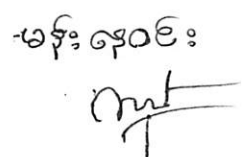 မန်းနေဝင်း